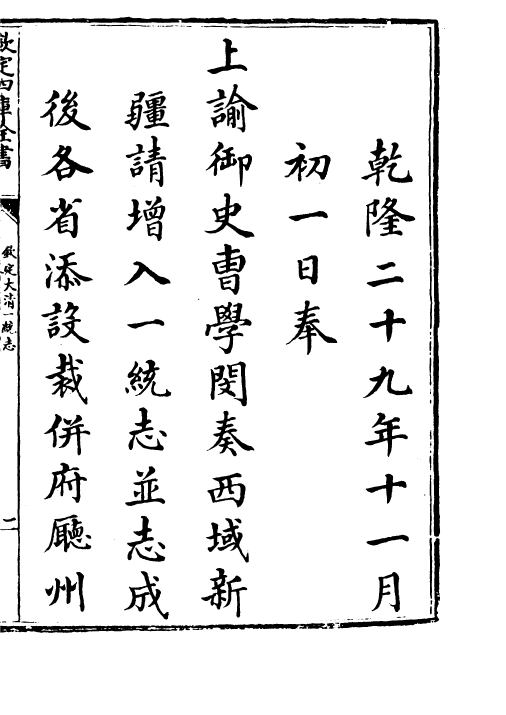 乾隆二十九年十一月
初一日奉
上諭御史曹學閔奏西域新
疆請增入一統志並志成
後各省添設裁併府廳州
欽定四庫全書
欽定大清一統志
二